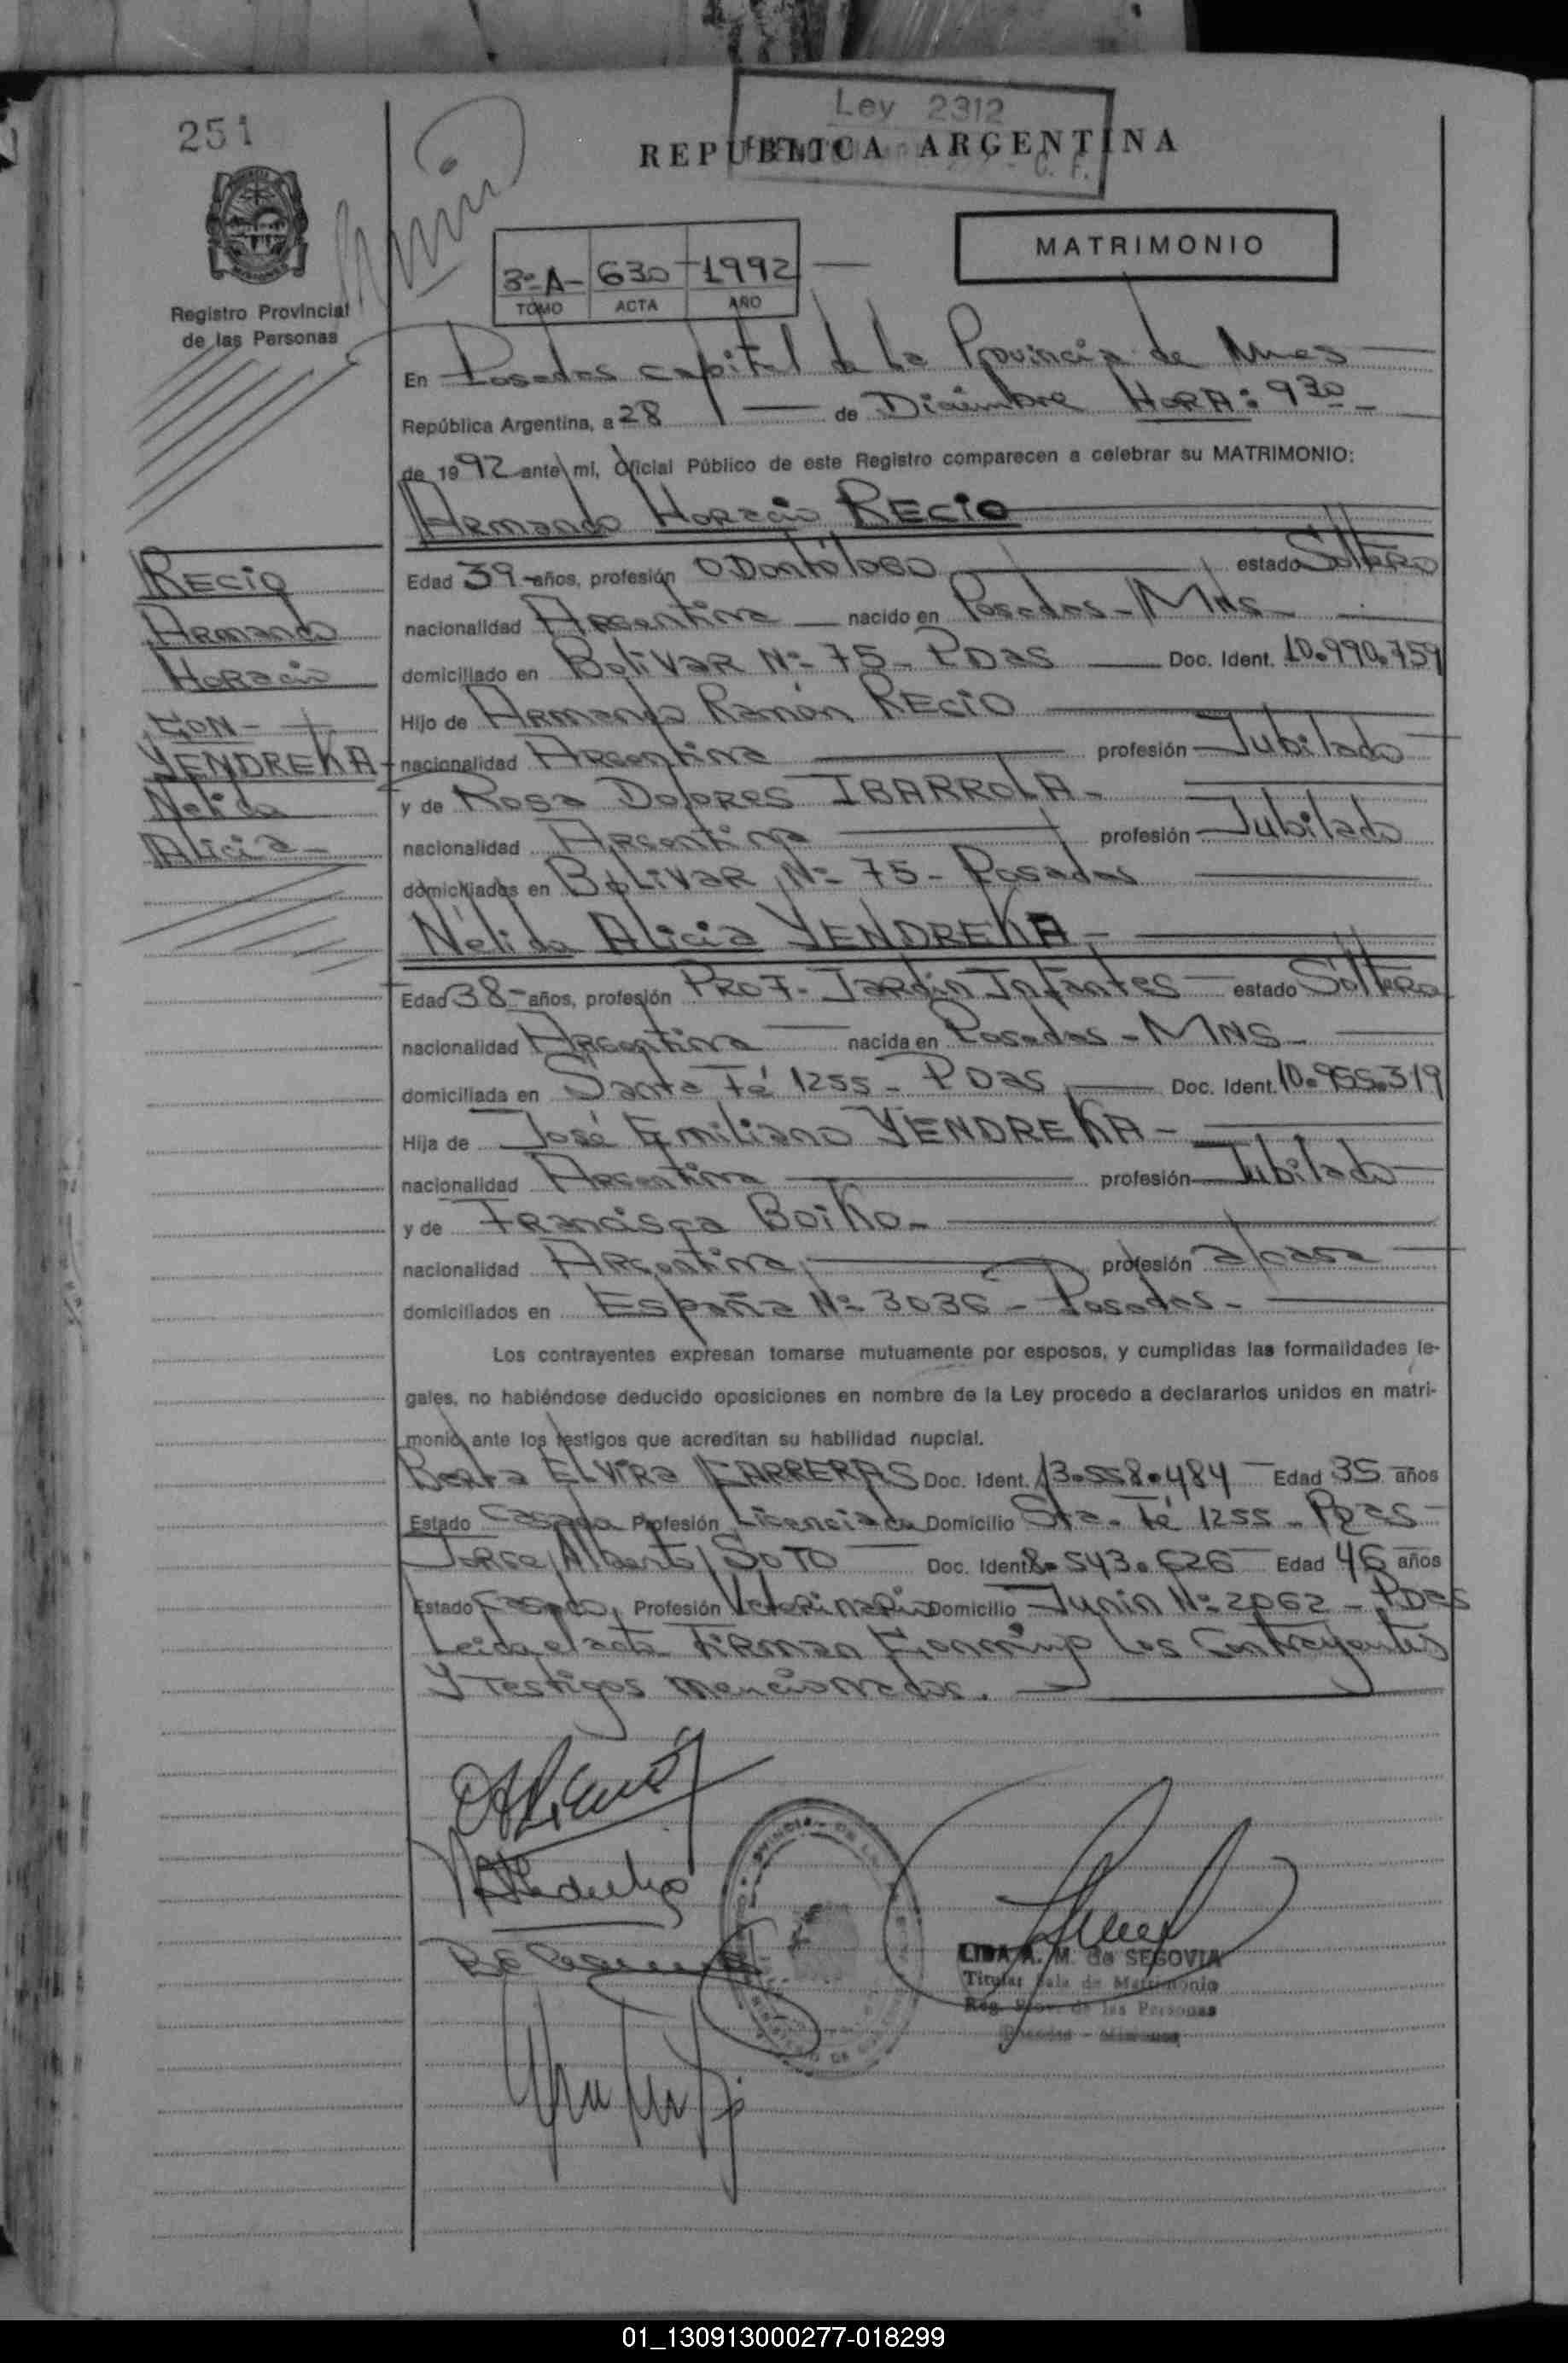 251
Ley 2312
REPUBLICA ARGENTINA
C. F.
MATRIMONIO
3º-A- 630 1992
TOMO ACTA AÑO
Registro Provincial
de las Personas
En Posadas capital de la Provincia de Mnes
República Argentina, a 28 de Diciembre HORA: 9 30
de 1992 ante mí, Oficial Público de este Registro comparecen a celebrar su MATRIMONIO:
Armando Horacio RECIO
RECIO
Armando
Horacio
CON-
YENDREKA
Nelida
Alicia-
Edad 39-años, profesión Odontólogo estado Soltero
nacionalidad Argentina nacido en Posadas-Mns-
domiciliado en Bolivar Nº 75- Pdas Doc. Ident. 10.990.759
Hijo de Armando Ramón RECIO
nacionalidad Argentina profesión Jubilado
y de Rosa Dolores IBARROLA-
nacionalidad Argentina profesión Jubilado
domiciliados en Bolivar Nº 75- Posadas
Nélida Alicia YENDREKA-
Edad 38-años, profesión Prof- Jardin Infantes estado Soltera
nacionalidad Argentina nacida en Posadas-MNS-
domiciliada en Santa Fé 1255- Pdas Doc. Ident. 10.955.319
Hija de José Emiliano YENDREKA-
nacionalidad Argentina profesión Jubilado
y de Francisca Boiko-
nacionalidad Argentina profesión a/casa
domiciliados en España Nº 3036- Posadas-
Los contrayentes expresan tomarse mutuamente por esposos, y cumplidas las formalidades le-
gales, no habiéndose deducido oposiciones en nombre de la Ley procedo a declararlos unidos en matri-
monio ante los testigos que acreditan su habilidad nupcial.
Berta Elvira CARRERAS Doc. Ident. 13.558.484 Edad 35 años
Estado Casada Profesión Licenciada Domicilio Sta- Fé 1255- Pdas
Jorge Alberto SOTO Doc. Ident. 8.543.626 Edad 46 años
Estado Casado, Profesión Veterinario Domicilio Junin Nº 2062- Pdas
Leida el acta Firman Conmigo los Contrayentes
y Testigos mencionados.
LIDA A. M. de SEGOVIA
Titular Sala de Matrimonio
Reg. Prov. de las Personas
Posadas - Misiones
01_130913000277-018299